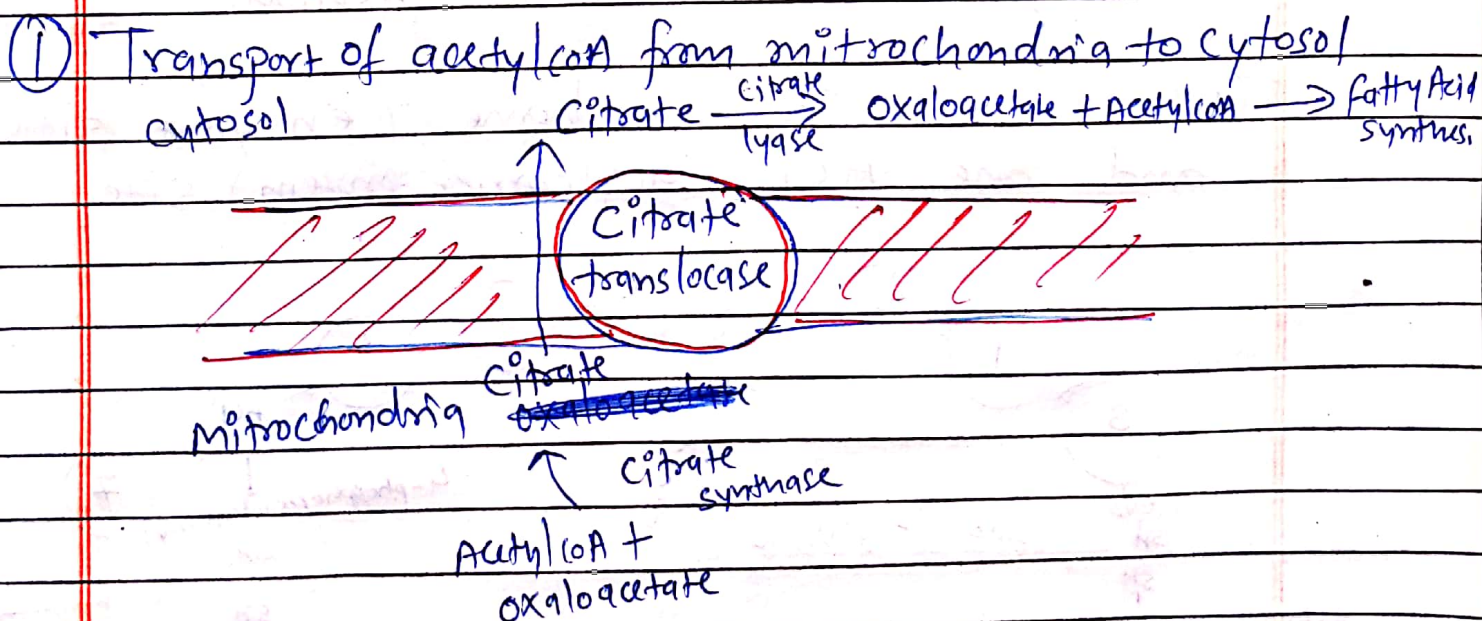 ① Transport of acetylcoA from mitrochondria to cytosol
cytosol Citrate citrate lyase oxaloacetate + AcetylcoA → fatty Acid synthes.
Citrate
translocase
Citrate
Mitrochondria
Citrate
synthase
AcetylcoA +
oxaloacetate